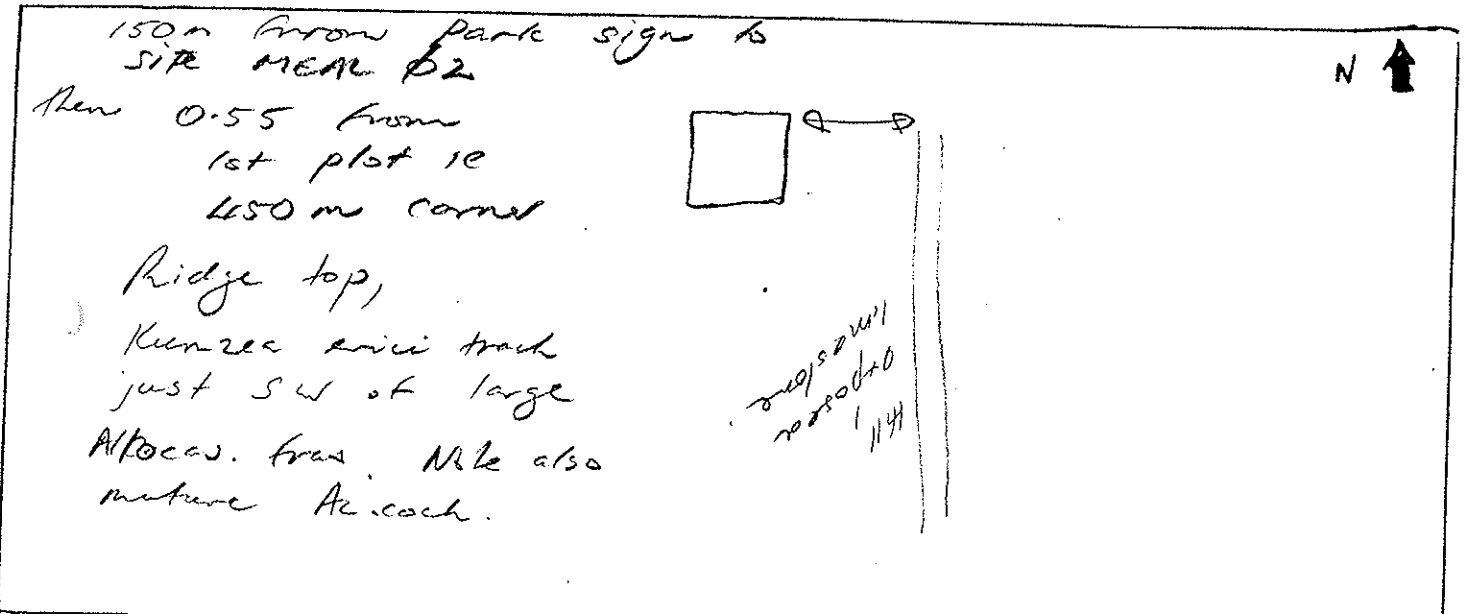 150m from Park sign to
site MEAL 02
then 0.55 from
1st plot ie
450m corner
N
Ridge top,
Kunzea erici track
just SW of large
Allocas. fras. Note also
mature Ac. coch.
Hill
opposite